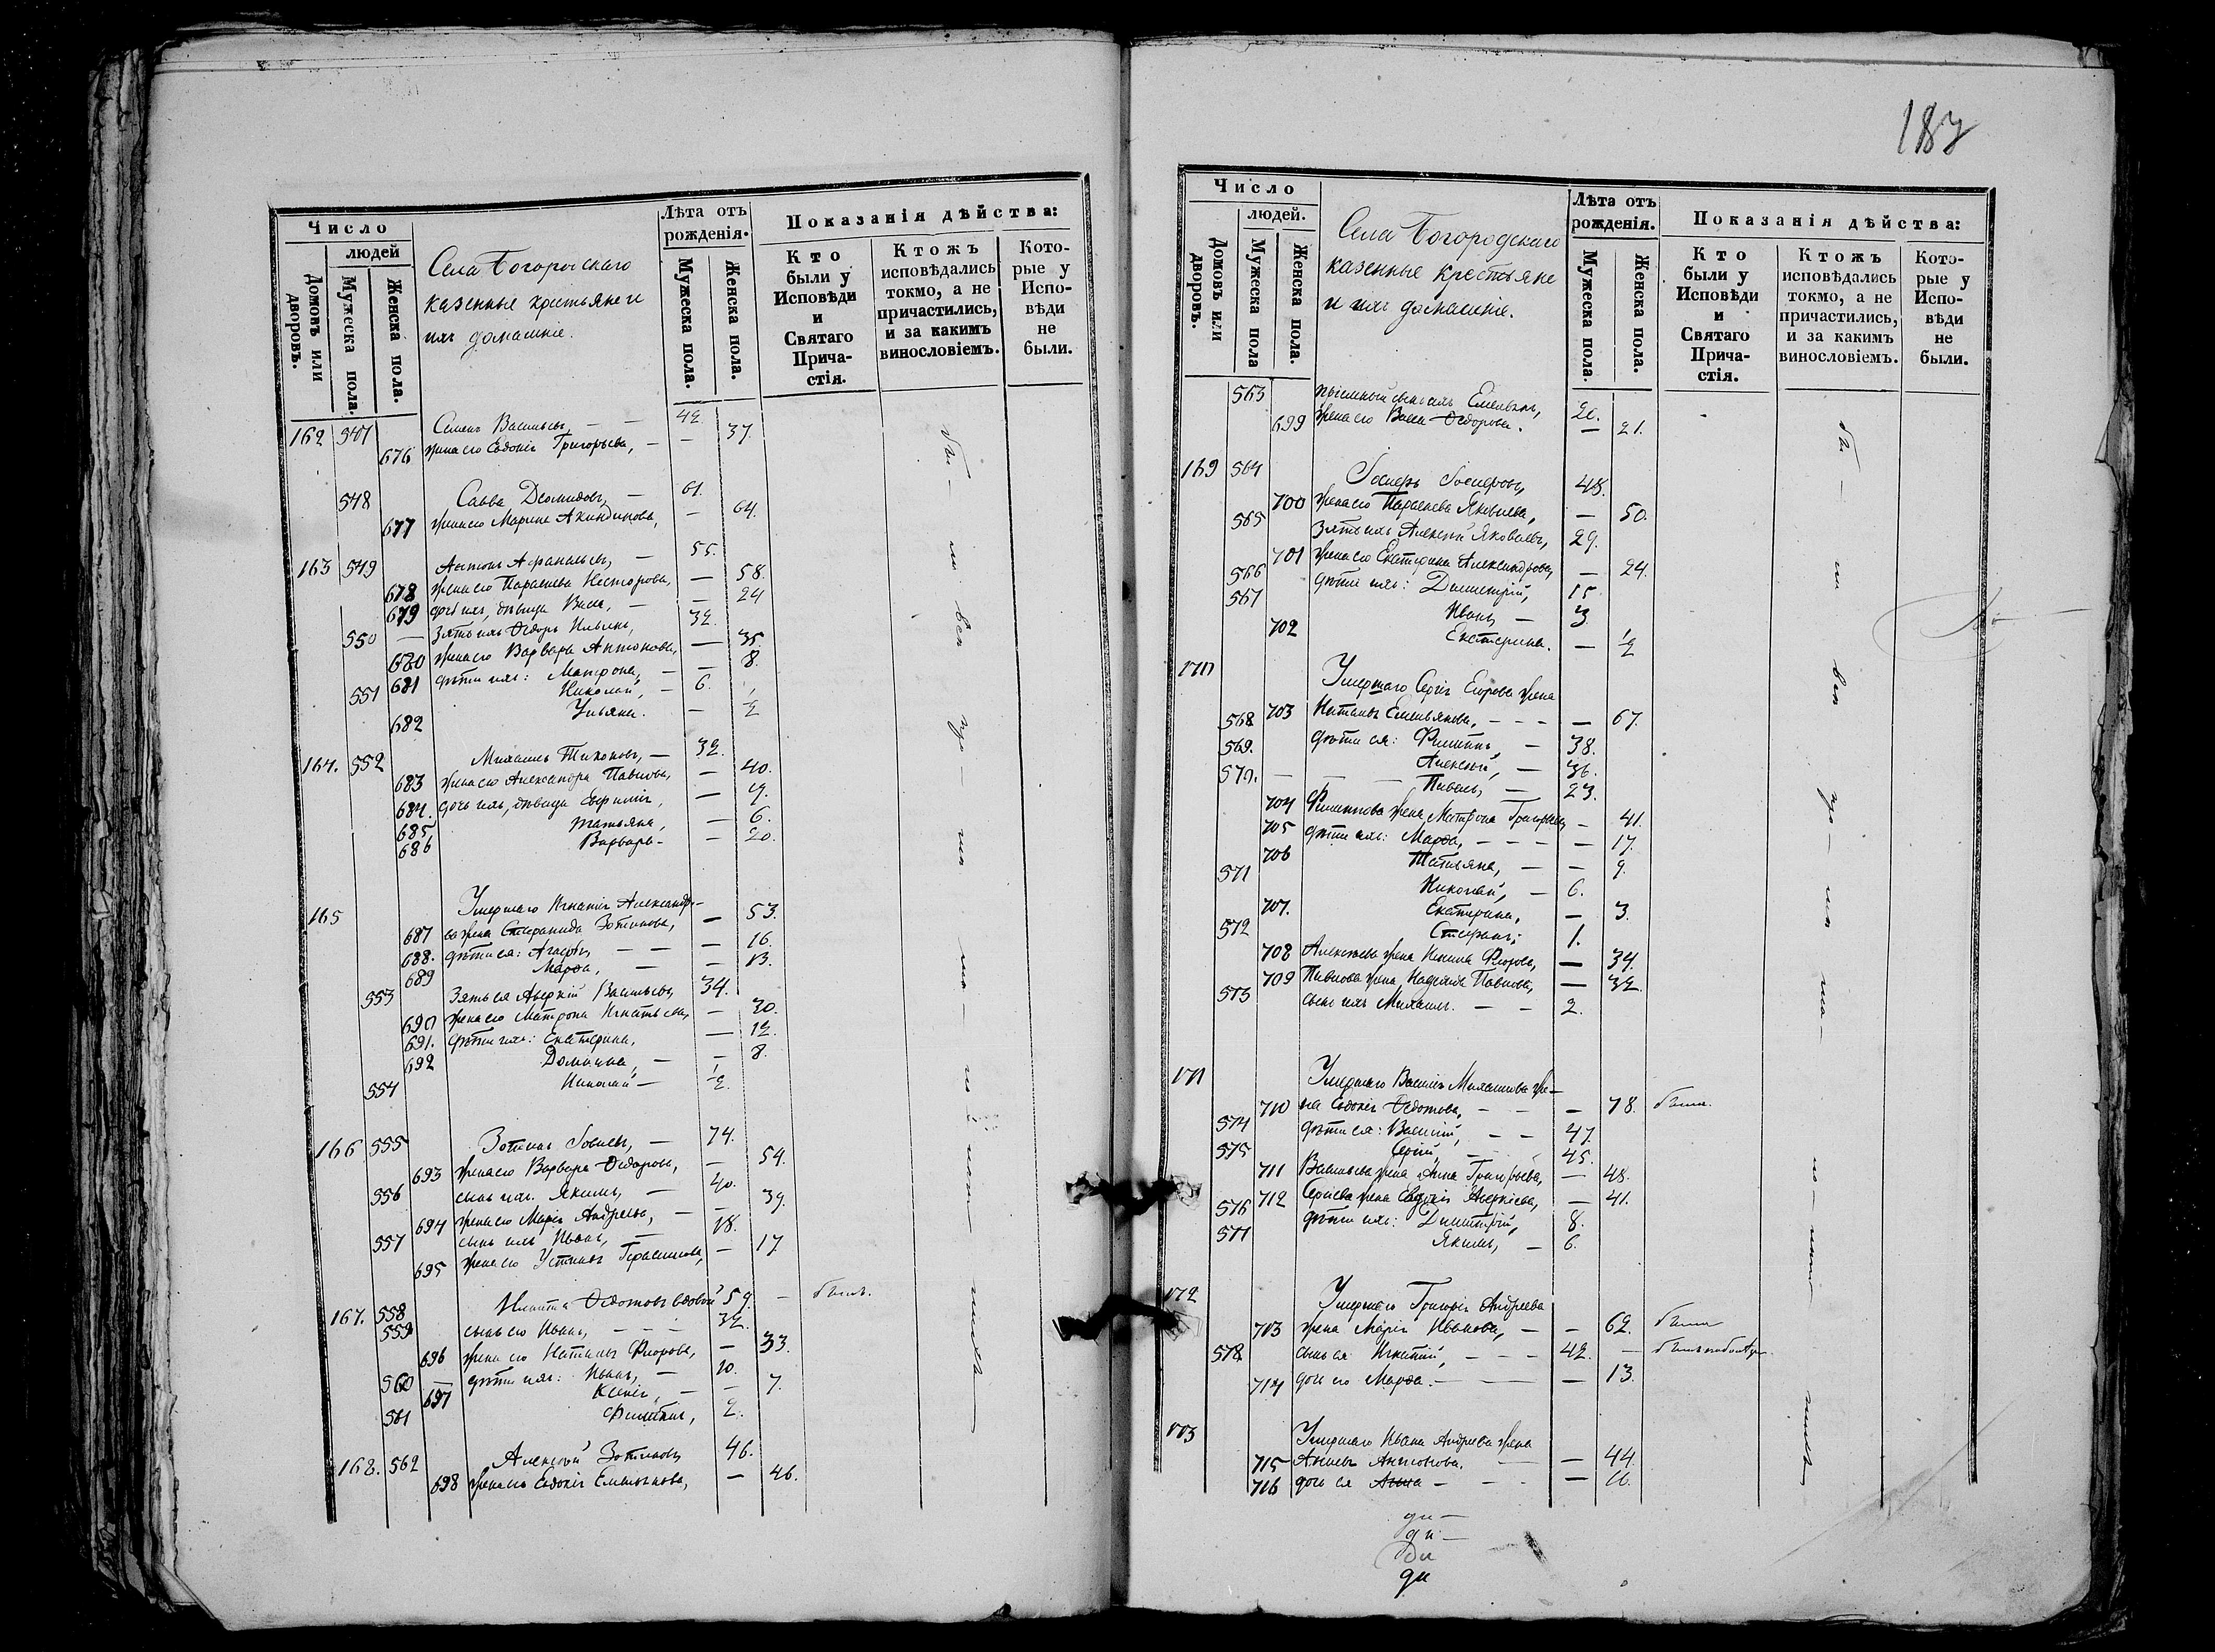 Число
людей
Домовъ или дворовъ.
Мужеска пола.
Женска пола.
Села Богородскаго
казенные крестьяне и
ихъ домашніе.
Лѣта отъ рожденія.
Мужеска пола.
Женска пола.
Показанія дѣйства:
Кто были у Исповѣди и Святаго Причастія.
Ктожъ исповѣдались токмо, а не причастились, и за какимъ винословіемъ.
Которые у Исповѣди не были.
162 547 Семенъ Васильевъ, — 42.
676 жена его Евдокія Григорьева, — — 37.
548 Савва Діомидовъ, — 61.
677 жена его Марина Акиндинова, — 64.
163 549 Антонъ Афанасьевъ, — 55.
678 жена его Параскева Несторова, — 58.
679 дочь ихъ, дѣвица Васса, — — 24
550 — зять ихъ Ѳедоръ Ильинъ, 32.
680 жена его Варвара Антонова, — 35.
681 дѣти ихъ: Матрона, — — 8.
551 Николай, — 6.
682 Ульяна. — 1/2
164. 552 Михаилъ Тихоновъ, — 32.
683 жена его Александра Павлова, — 40.
684. дочь ихъ, дѣвица Евфимія, — 9.
685 Татьяна, — 6.
686 Варвара — — 20.
165 Умершаго Игнатія Александро-
687 ва жена Степанида Зотикова, — 53.
688. дѣти ея: Агафья, — — — 16.
689 Марѳа, — — 13.
553 Зять ея Аверкій Васильевъ, 34.
690 жена его Матрона Игнатьева, — 30.
691. дѣти ихъ: Екатерина, — 12.
692 Домника, — — 8.
554 Николай — 1/2.
166 555 Зотикъ Іовлевъ, — 74.
693 жена его Варвара Ѳедорова, — 54.
556 сынъ ихъ Якимъ, — 40.
694 жена его Марія Андреева, — — 39.
557 сынъ ихъ Иванъ, — 18.
695 жена его Устинья Герасимова, — 17
167. 558 Никита Ѳедотовъ вдовый 59. — былъ.
559 сынъ его Иванъ, — — — 32.
696 жена его Наталья Фролова, — 33.
560 — дѣти ихъ: Иванъ, — 10.
697 Ксенія, — — 7.
561 Филиппъ, 2.
168. 562 Алексѣй Зотиковъ, 46.
698 жена его Евдокія Емельянова, — 46.
бы — ли вси про — ...
183
Число
людей.
Домовъ или дворовъ.
Мужеска пола
Женска пола.
Села Богородскаго
казенные крестьяне
и ихъ домашніе.
Лѣта отъ рожденія.
Мужеска пола.
Женска пола.
Показанія дѣйства:
Кто были у Исповѣди и Святаго Причастія.
Ктожъ исповѣдались токмо, а не причастились, и за какимъ винословіемъ.
Которые у Исповѣди не были.
563 пріемный сынъ ихъ Емельянъ, 20.
699 жена его Васса Ѳедорова. — 21.
169 564 Іосифъ Іосифовъ, 48.
700 жена его Параскева Яковлева, — 50.
565 Зять ихъ Алексѣй Яковлевъ, 29.
701 жена его Екатерина Александрова, — 24.
566 дѣти ихъ: Димитрій, 15
567 Иванъ, — 3
702 Екатерина. — 1/2
170 Умершаго Сергія Егорова жена
703 Наталья Емельянова, — — — — 67.
568 дѣти ея: Филиппъ, — 38.
569. Алексѣй, — 36.
570. — — — Павелъ, — 23.
704 Филиппова жена Матрона Григорьева, — 41.
705 дѣти ихъ: Марѳа, — — — — 17.
706 Татьяна, — — 9.
571 Николай, — 6.
707. Екатерина, — 3.
572 Стефанъ; 1.
708 Алексѣева жена Ирина Фролова, — 34.
709 Павлова жена Надежда Павлова, — 32.
573 сынъ ихъ Михаилъ. — — 2.
171 Умершаго Василія Михайлова же-
710 на Евдокія Ѳедотова, — — — 78. была.
574 дѣти ея: Василій, — — 47.
575 Сергій, — — 45.
711 Васильева жена Анна Григорьева, — 48.
712 Сергіева жена Евдокія Аверкіева, — 41.
576 дѣти ихъ: Димитрій, 8.
577 Якимъ, — 6.
172 Умершаго Григорія Андреева
713 жена Марія Иванова, — — 62. была
578 сынъ ея Игнатій, — — — 42. —
714 дочь его Марѳа. — — — 13.
173 Умершаго Ивана Андреева жена
715 Анисья Антонова. — — 44.
716 дочь ея Анна — — — — 16.
бы — ли вси про — ...
ди —
ди —
ди
ди